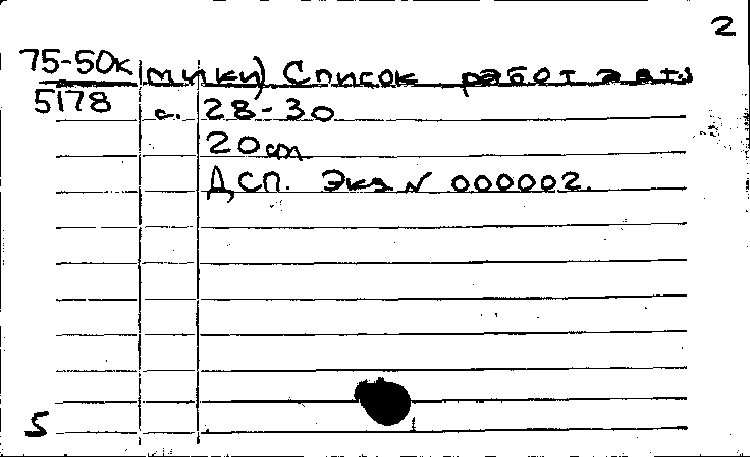 2
75-50к мики) Список работ авт.:
5178 с. 28-30
20 cm
ДСП. Экз. N 000002.
5